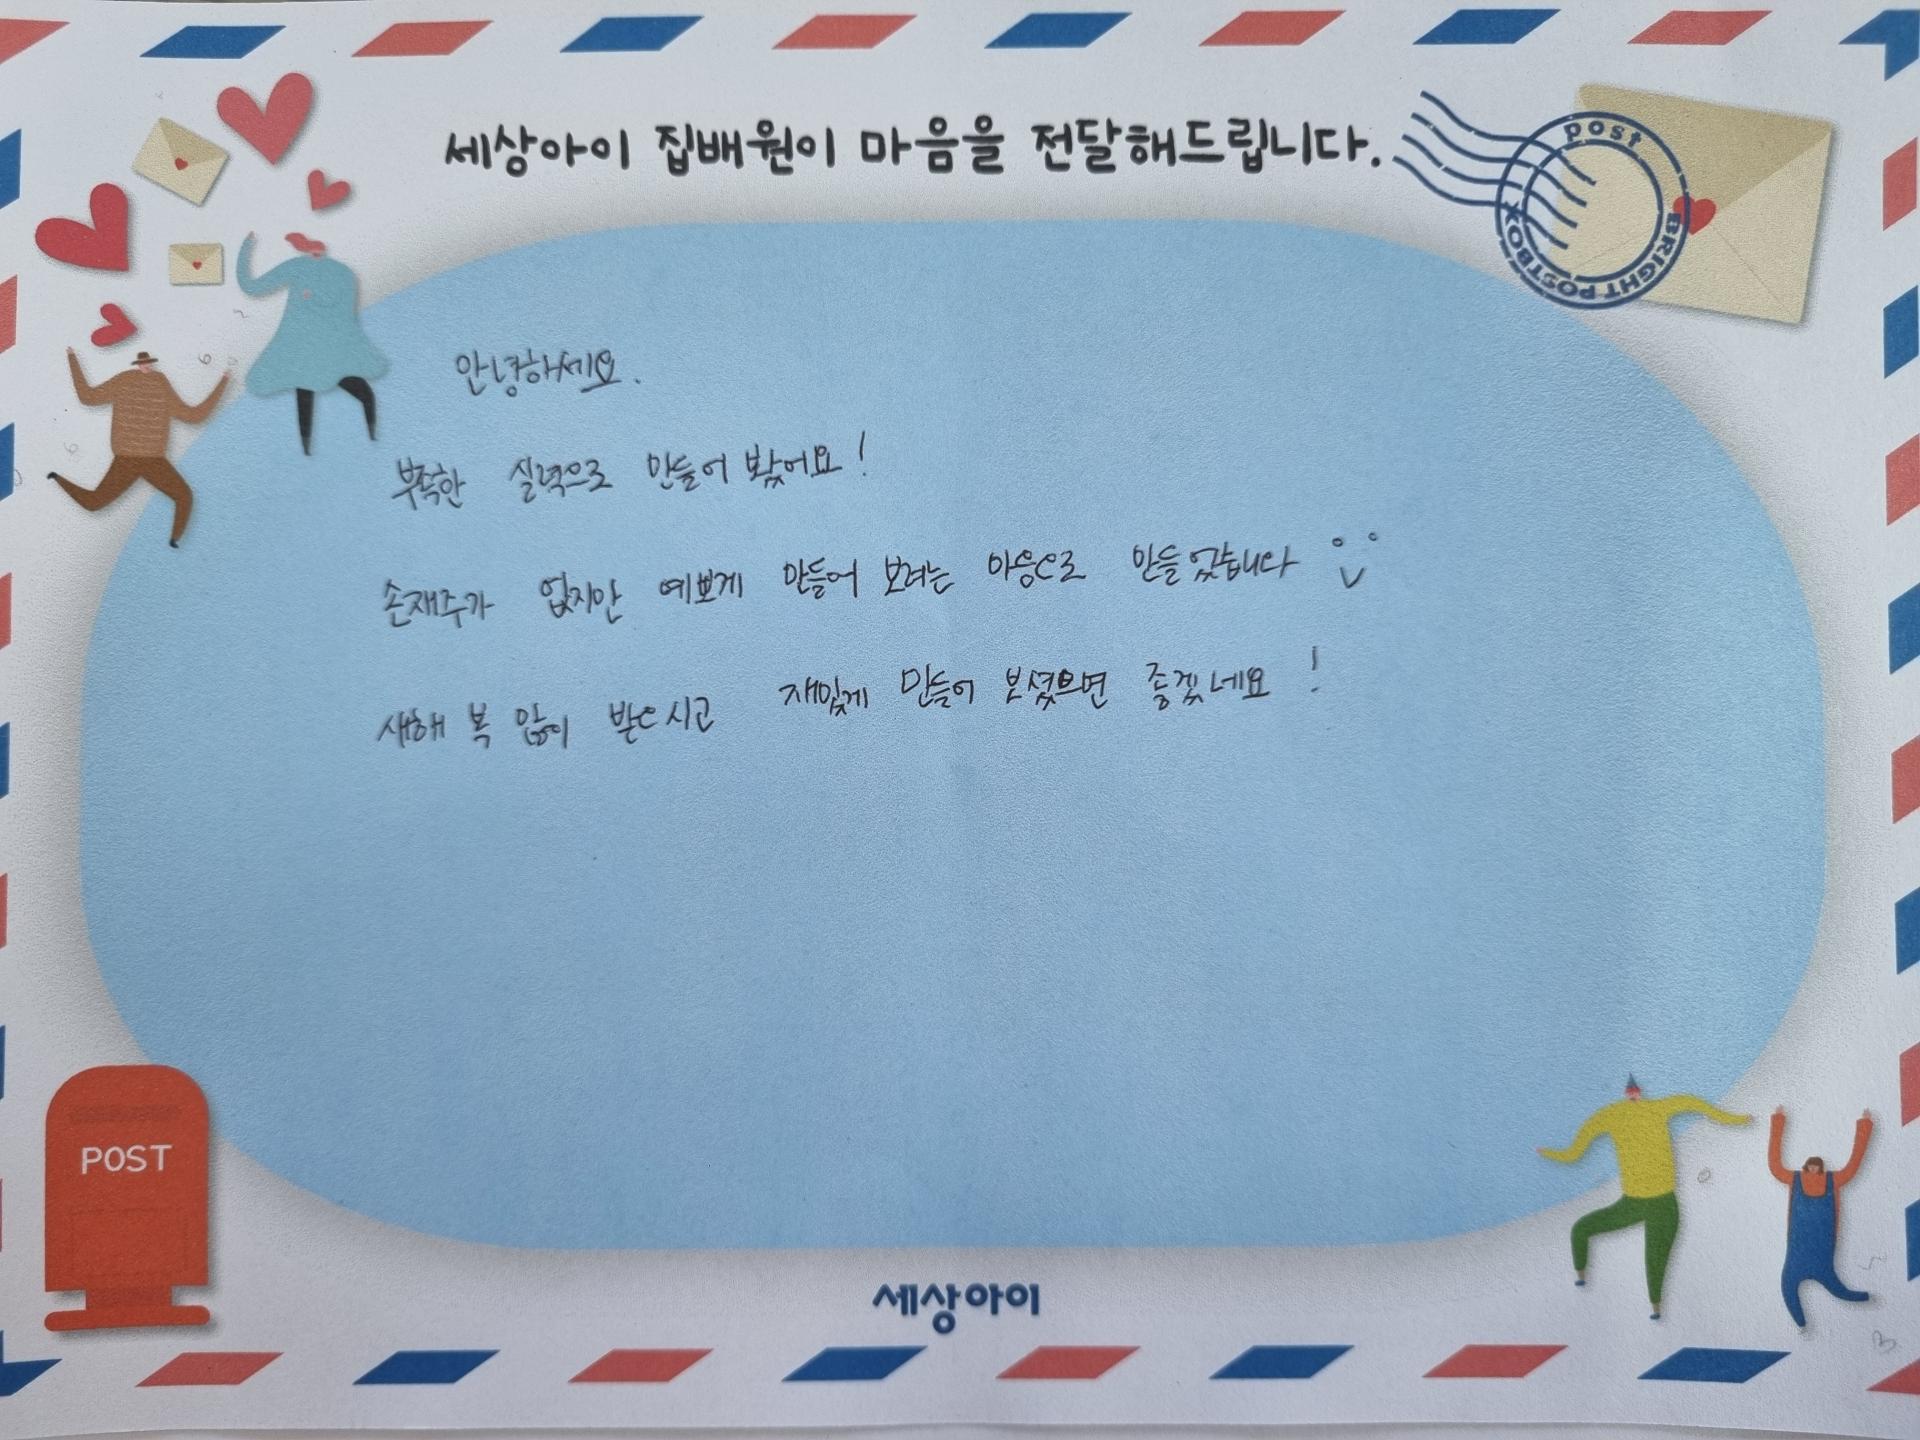 세상아이 집배원이 마음을 전달해드립니다.
post
BRIGHT POSTBOX
안녕하세요.
부족한 실력으로 만들어 봤어요!
손재주가 없지만 예쁘게 만들어 보려는 마음으로 만들었습니다
새해 복 많이 받으시고 재밌게 만들어 보셨으면 좋겠네요!
POST
세상아이